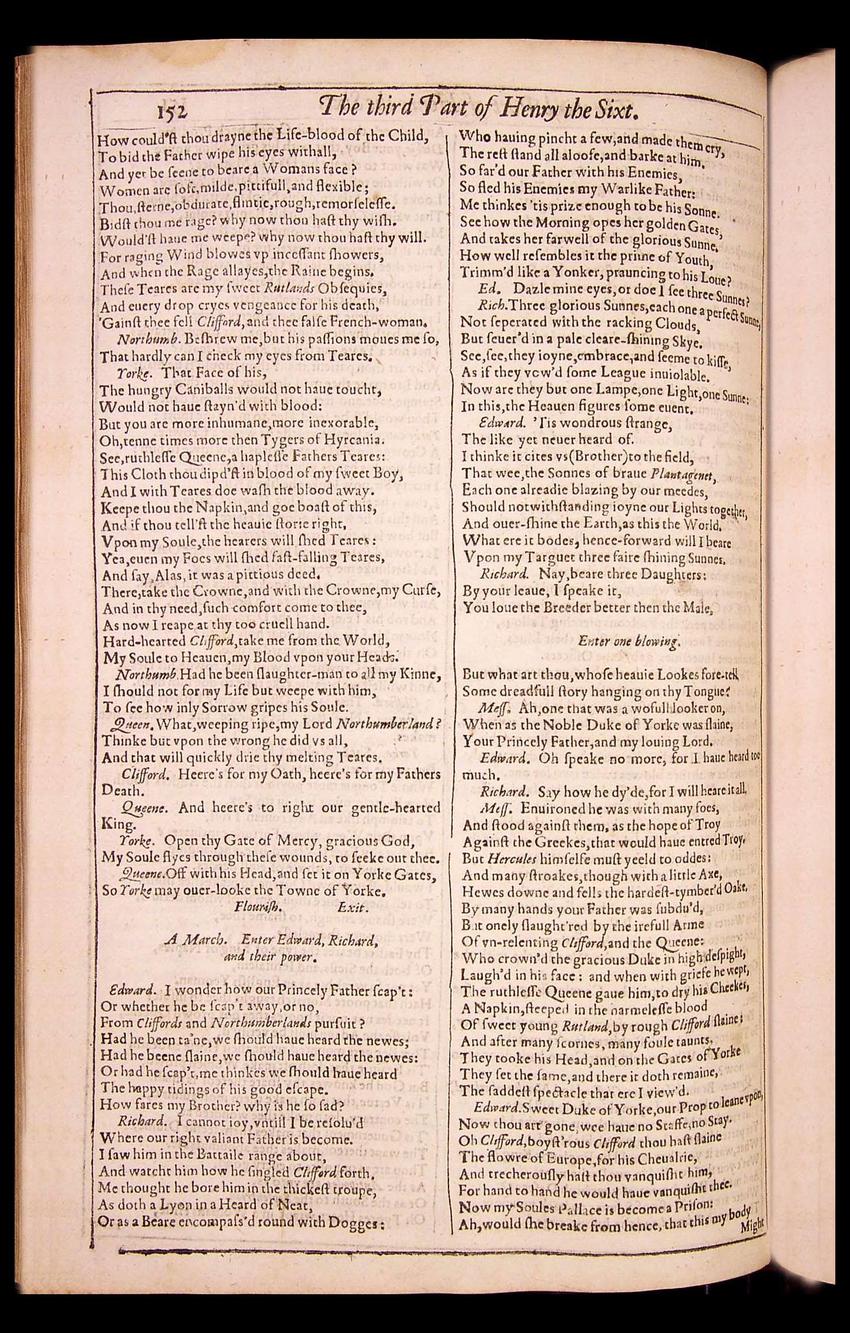 152
The third Part of Henry the Sixt.
How could'ſt thou drayne the Life-blood of the Child,
To bid the Father wipe his eyes withall,
And yet be ſeene to beare a Womans face?
Women are ſoft, milde, pittifull, and flexible;
Thou, ſterne, obdurate, flintie, rough, remorſeleſſe.
Bidſt thou me rage? why now thou haſt thy wiſh.
Would'ſt haue me weepe? why now thou haſt thy will.
For raging Wind blowes vp inceſſant ſhowers,
And when the Rage allayes, the Raine begins.
Theſe Teares are my ſweet Rutlands Obſequies,
And euery drop cryes vengeance for his death,
'Gainſt thee fell Clifford, and thee falſe French-woman.
Northumb. Beſhrew me, but his paſſions moues me ſo,
That hardly can I check my eyes from Teares.
Yorke. That Face of his,
The hungry Caniballs would not haue toucht,
Would not haue ſtayn'd with blood:
But you are more inhumane, more inexorable,
Oh, tenne times more then Tygers of Hyrcania.
See, ruthleſſe Queene, a hapleſſe Fathers Teares:
This Cloth thou dipd'ſt in blood of my ſweet Boy,
And I with Teares doe waſh the blood away.
Keepe thou the Napkin, and goe boaſt of this,
And if thou tell'ſt the heauie ſtorie right,
Vpon my Soule, the hearers will ſhed Teares:
Yea, euen my Foes will ſhed faſt-falling Teares,
And ſay, Alas, it was a pittious deed.
There, take the Crowne, and with the Crowne, my Curſe,
And in thy need, ſuch comfort come to thee,
As now I reape at thy too cruell hand.
Hard-hearted Clifford, take me from the World,
My Soule to Heauen, my Blood vpon your Heads.
Northumb. Had he been ſlaughter-man to all my Kinne,
I ſhould not for my Life but weepe with him,
To ſee how inly Sorrow gripes his Soule.
Queen. What, weeping ripe, my Lord Northumberland?
Thinke but vpon the wrong he did vs all,
And that will quickly drie thy melting Teares.
Clifford. Heere's for my Oath, heere's for my Fathers
Death.
Queene. And heere's to right our gentle-hearted
King.
Yorke. Open thy Gate of Mercy, gracious God,
My Soule flyes through theſe wounds, to ſeeke out thee.
Queene. Off with his Head, and ſet it on Yorke Gates,
So Yorke may ouer-looke the Towne of Yorke.
Flouriſh. Exit.
A March. Enter Edward, Richard,
and their power.
Edward. I wonder how our Princely Father ſcap't:
Or whether he be ſcap't away, or no,
From Cliffords and Northumberlands purſuit?
Had he been ta'ne, we ſhould haue heard the newes;
Had he beene ſlaine, we ſhould haue heard the newes:
Or had he ſcap't, me thinkes we ſhould haue heard
The happy tidings of his good eſcape.
How fares my Brother? why is he ſo ſad?
Richard. I cannot ioy, vntill I be reſolu'd
Where our right valiant Father is become.
I ſaw him in the Battaile range about,
And watcht him how he ſingled Clifford forth.
Me thought he bore him in the thickeſt troupe,
As doth a Lyon in a Heard of Neat,
Or as a Beare encompaſs'd round with Dogges:
Who hauing pincht a few, and made them cry,
The reſt ſtand all aloofe, and barke at him.
So far'd our Father with his Enemies,
So fled his Enemies my Warlike Father:
Me thinkes 'tis prize enough to be his Sonne.
See how the Morning opes her golden Gates,
And takes her farwell of the glorious Sunne,
How well reſembles it the prime of Youth,
Trimm'd like a Yonker, prauncing to his Loue?
Ed. Dazle mine eyes, or doe I ſee three Sunnes?
Rich. Three glorious Sunnes, each one a perfect Sunne,
Not ſeperated with the racking Clouds,
But ſeuer'd in a pale cleare-ſhining Skye.
See, ſee, they ioyne, embrace, and ſeeme to kiſſe,
As if they vow'd ſome League inuiolable.
Now are they but one Lampe, one Light, one Sunne:
In this, the Heauen figures ſome euent.
Edward. 'Tis wondrous ſtrange,
The like yet neuer heard of.
I thinke it cites vs (Brother) to the field,
That wee, the Sonnes of braue Plantagenet,
Each one alreadie blazing by our meedes,
Should notwithſtanding ioyne our Lights together,
And ouer-ſhine the Earth, as this the World.
What ere it bodes, hence-forward will I beare
Vpon my Targuet three faire ſhining Sunnes.
Richard. Nay, beare three Daughters:
By your leaue, I ſpeake it,
You loue the Breeder better then the Male.
Enter one blowing.
But what art thou, whoſe heauie Lookes fore-tell
Some dreadfull ſtory hanging on thy Tongue?
Meſſ. Ah, one that was a wofull looker on,
When as the Noble Duke of Yorke was ſlaine,
Your Princely Father, and my louing Lord.
Edward. Oh ſpeake no more, for I haue heard too
much.
Richard. Say how he dy'de, for I will heare it all.
Meſſ. Enuironed he was with many foes,
And ſtood againſt them, as the hope of Troy
Againſt the Greekes, that would haue entred Troy.
But Hercules himſelfe muſt yeeld to oddes:
And many ſtroakes, though with a little Axe,
Hewes downe and fells the hardeſt-tymber'd Oake.
By many hands your Father was ſubdu'd,
But onely ſlaught'red by the irefull Arme
Of vn-relenting Clifford, and the Queene:
Who crown'd the gracious Duke in high deſpight,
Laugh'd in his face: and when with griefe he wept,
The ruthleſſe Queene gaue him, to dry his Cheekes,
A Napkin, ſteeped in the harmeleſſe blood
Of ſweet young Rutland, by rough Clifford ſlaine:
And after many ſcornes, many foule taunts,
They tooke his Head, and on the Gates of Yorke
They ſet the ſame, and there it doth remaine,
The ſaddeſt ſpectacle that ere I view'd.
Edward. Sweet Duke of Yorke, our Prop to leane vpon,
Now thou art gone, wee haue no Staffe, no Stay.
Oh Clifford, boyſt'rous Clifford thou haſt ſlaine
The flowre of Europe, for his Cheualrie,
And trecherouſly haſt thou vanquiſht him,
For hand to hand he would haue vanquiſht thee.
Now my Soules Pallace is become a Priſon:
Ah, would ſhe breake from hence, that this my body
Might